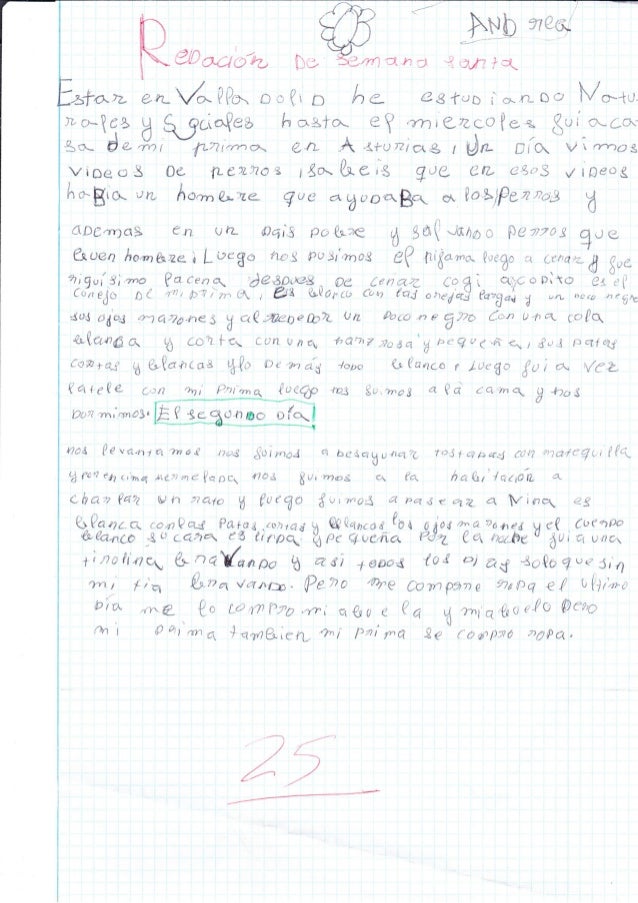 ANDrea
Redación De Semana santa
Estar en Valla DoliD he estuDianDo Natu
rales y Sociales hasta el miercoles fui a ca
sa de mi prima en Asturias, Un Día vimos
viDeos De perros, sabeis que en esos viDeos
haBia un hombre que ayuDaBa a los perros y
aDemas en un pais pobre y salvando perros que
buen hombre, Luego nos pusimos el pijama luego a cenar y fue
riquísimo la cena despues De cenar cogi a copito es el
conejo De mi prima, Es blanco con las orejas largas y un poco negro
sus ojos marrones y alrededor un poco negro con una cola
blanca y corta con una nariz rosa y pequeña, sus patas
cortas y blancas y lo Demás todo blanco, Luego fui a ver
la tele con mi prima luego nos fuimos a la cama y nos
Dormimos. El segunDo Día!
nos levantamos nos fuimos a besayunar tostadas con matequilla
y por encima mermelada nos fuimos a la habitación a
charlar un rato y luego fuimos a pasear a Nina es
blanca con las patas cortas y blancas los ojos marrones y el cuerpo
blanco su cara es linda y pequeña por la noche fui a una
tirolina bravando y asi todos los Dias solo que sin
mi tia bravando. Pero me compre ropa el ultimo
Dia me lo compro mi abuela y mi abuelo pero
mi prima tambien mi prima se compro ropa.
25